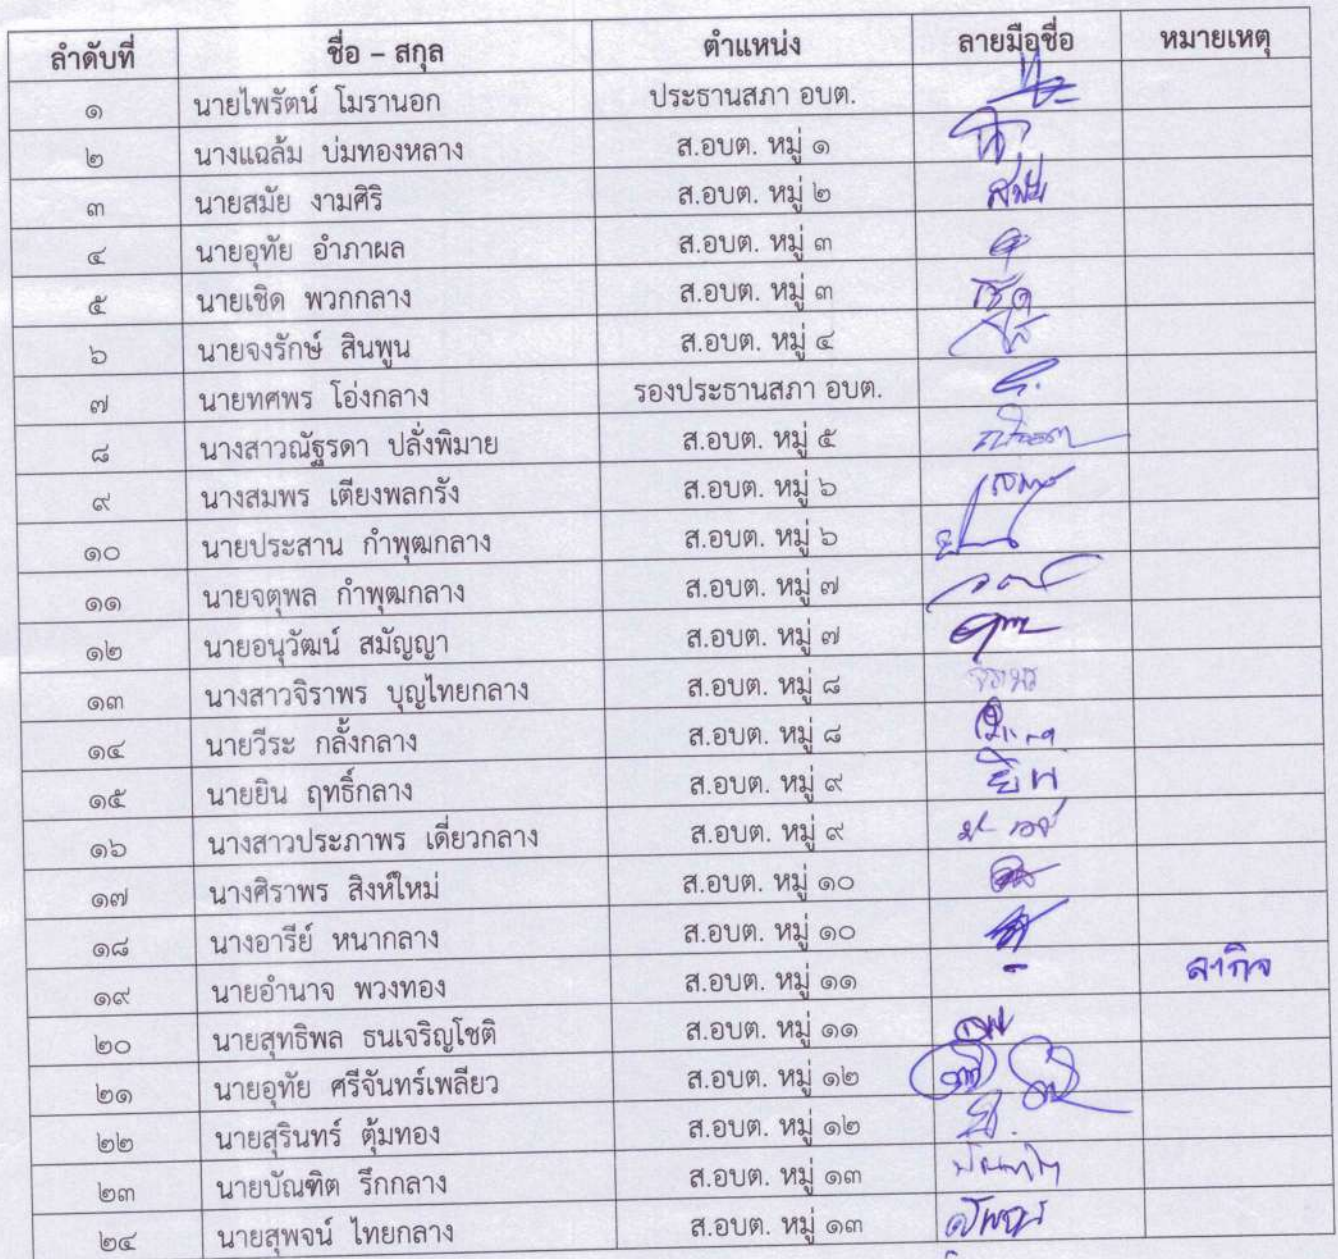 ลำดับที่ ชื่อ – สกุล ตำแหน่ง ลายมือชื่อ หมายเหตุ
๑ นายไพรัตน์ โมรานอก ประธานสภา อบต.
๒ นางแฉล้ม บ่มทองหลาง ส.อบต. หมู่ ๑
๓ นายสมัย งามศิริ ส.อบต. หมู่ ๒ สมัย
๔ นายอุทัย อำภาผล ส.อบต. หมู่ ๓
๕ นายเชิด พวกกลาง ส.อบต. หมู่ ๓ เชิด
๖ นายจงรักษ์ สินพูน ส.อบต. หมู่ ๔
๗ นายทศพร โอ่งกลาง รองประธานสภา อบต.
๘ นางสาวณัฐรดา ปลั่งพิมาย ส.อบต. หมู่ ๕
๙ นางสมพร เตียงพลกรัง ส.อบต. หมู่ ๖
๑๐ นายประสาน กำพุฒกลาง ส.อบต. หมู่ ๖
๑๑ นายจตุพล กำพุฒกลาง ส.อบต. หมู่ ๗
๑๒ นายอนุวัฒน์ สมัญญา ส.อบต. หมู่ ๗
๑๓ นางสาวจิราพร บุญไทยกลาง ส.อบต. หมู่ ๘ จิราพร
๑๔ นายวีระ กลั้งกลาง ส.อบต. หมู่ ๘
๑๕ นายยิน ฤทธิ์กลาง ส.อบต. หมู่ ๙ ยิน
๑๖ นางสาวประภาพร เดี่ยวกลาง ส.อบต. หมู่ ๙
๑๗ นางศิราพร สิงห์ใหม่ ส.อบต. หมู่ ๑๐
๑๘ นางอารีย์ หนากลาง ส.อบต. หมู่ ๑๐
๑๙ นายอำนาจ พวงทอง ส.อบต. หมู่ ๑๑ - ลากิจ
๒๐ นายสุทธิพล ธนเจริญโชติ ส.อบต. หมู่ ๑๑
๒๑ นายอุทัย ศรีจันทร์เพลียว ส.อบต. หมู่ ๑๒
๒๒ นายสุรินทร์ ตุ้มทอง ส.อบต. หมู่ ๑๒
๒๓ นายบัณฑิต รึกกลาง ส.อบต. หมู่ ๑๓
๒๔ นายสุพจน์ ไทยกลาง ส.อบต. หมู่ ๑๓